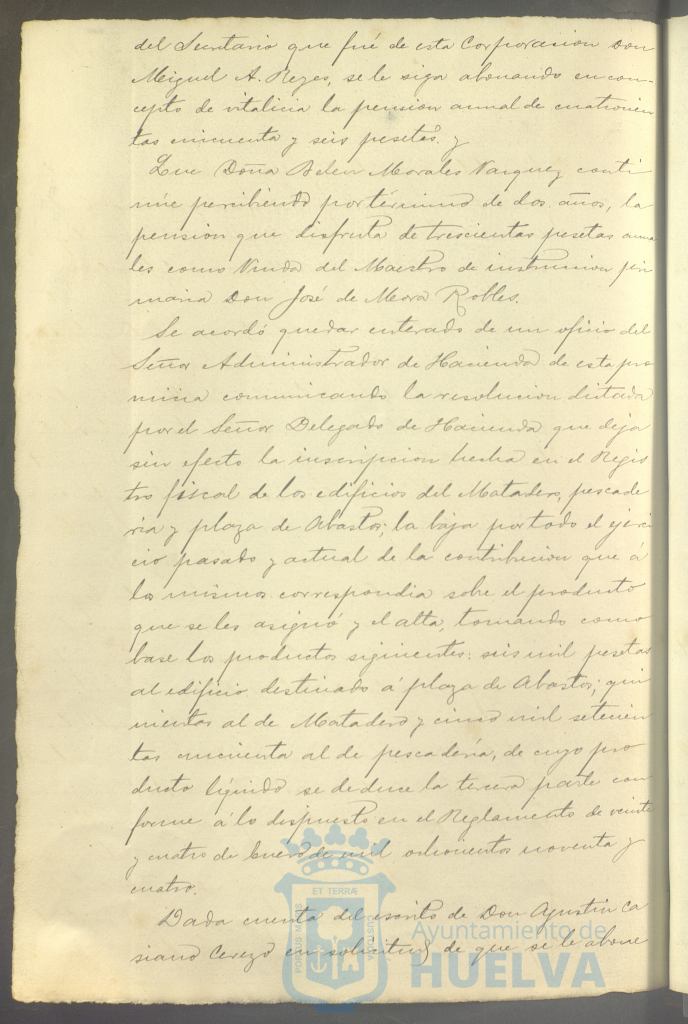 del Secretario que fué de esta Corporacion Don
Miguel A. Reyes, se le siga abonando en con-
cepto de vitalicia la pension anual de cuatrocien
tas cincuenta y seis pesetas. y
Que Doña Belen Morales Vazquez conti
núe percibiendo por término de dos años, la
pension que disfruta de trescientas pesetas anua
les como Viuda del Maestro de instruccion pri
maria Don José de Mora Robles.
Se acordó quedar enterado de un oficio del
Señor Administrador de Hacienda de esta pro
vincia comunicando la resolucion dictada
por el Señor Delegado de Hacienda que deja
sin efecto la inscripcion hecha en el Regis
tro fiscal de los edificios del Matadero, pescade
ria y plaza de Abastos; la baja por todo el ejerci
cio pasado y actual de la contribucion que á
los mismos correspondia sobre el producto
que se les asignó y el alta, tomando como
base los productos siguientes: seis mil pesetas
al edificio destinado á plaza de Abastos; qui
nientas al de Matadero y cinco mil setecien
tas cincuenta al de pescadería, de cuyo pro
ducto líquido se deduce la tercera parte con
forme á lo dispuesto en el Reglamento de veinte
y cuatro de Enero de mil ochocientos noventa y
cuatro.
Dada cuenta del escrito de Don Agustin Ca
siano Cerezo en solicitud de que se le abone
PORTUS MARIS ET TERRÆ CUSTODIA
Ayuntamiento de
HUELVA